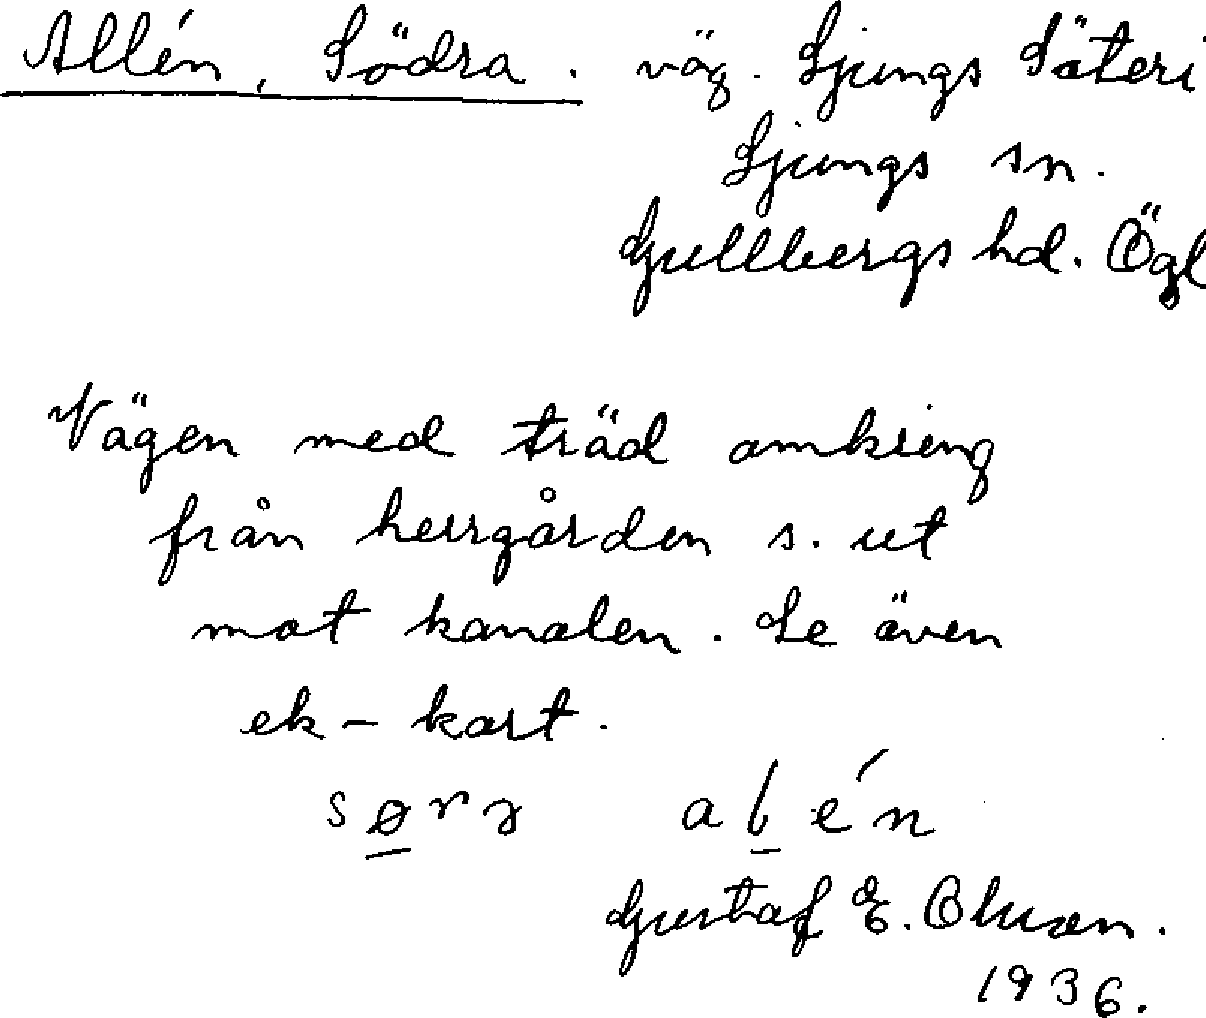 Allén, Södra. väg. Ljungs Säteri
Ljungs sn.
Gullbergs hd. Ögl
Vägen med träd omkring
från herrgården s. ut
mot kanalen. Se även
ek-kart.
Gustaf E. Olson.
1936.